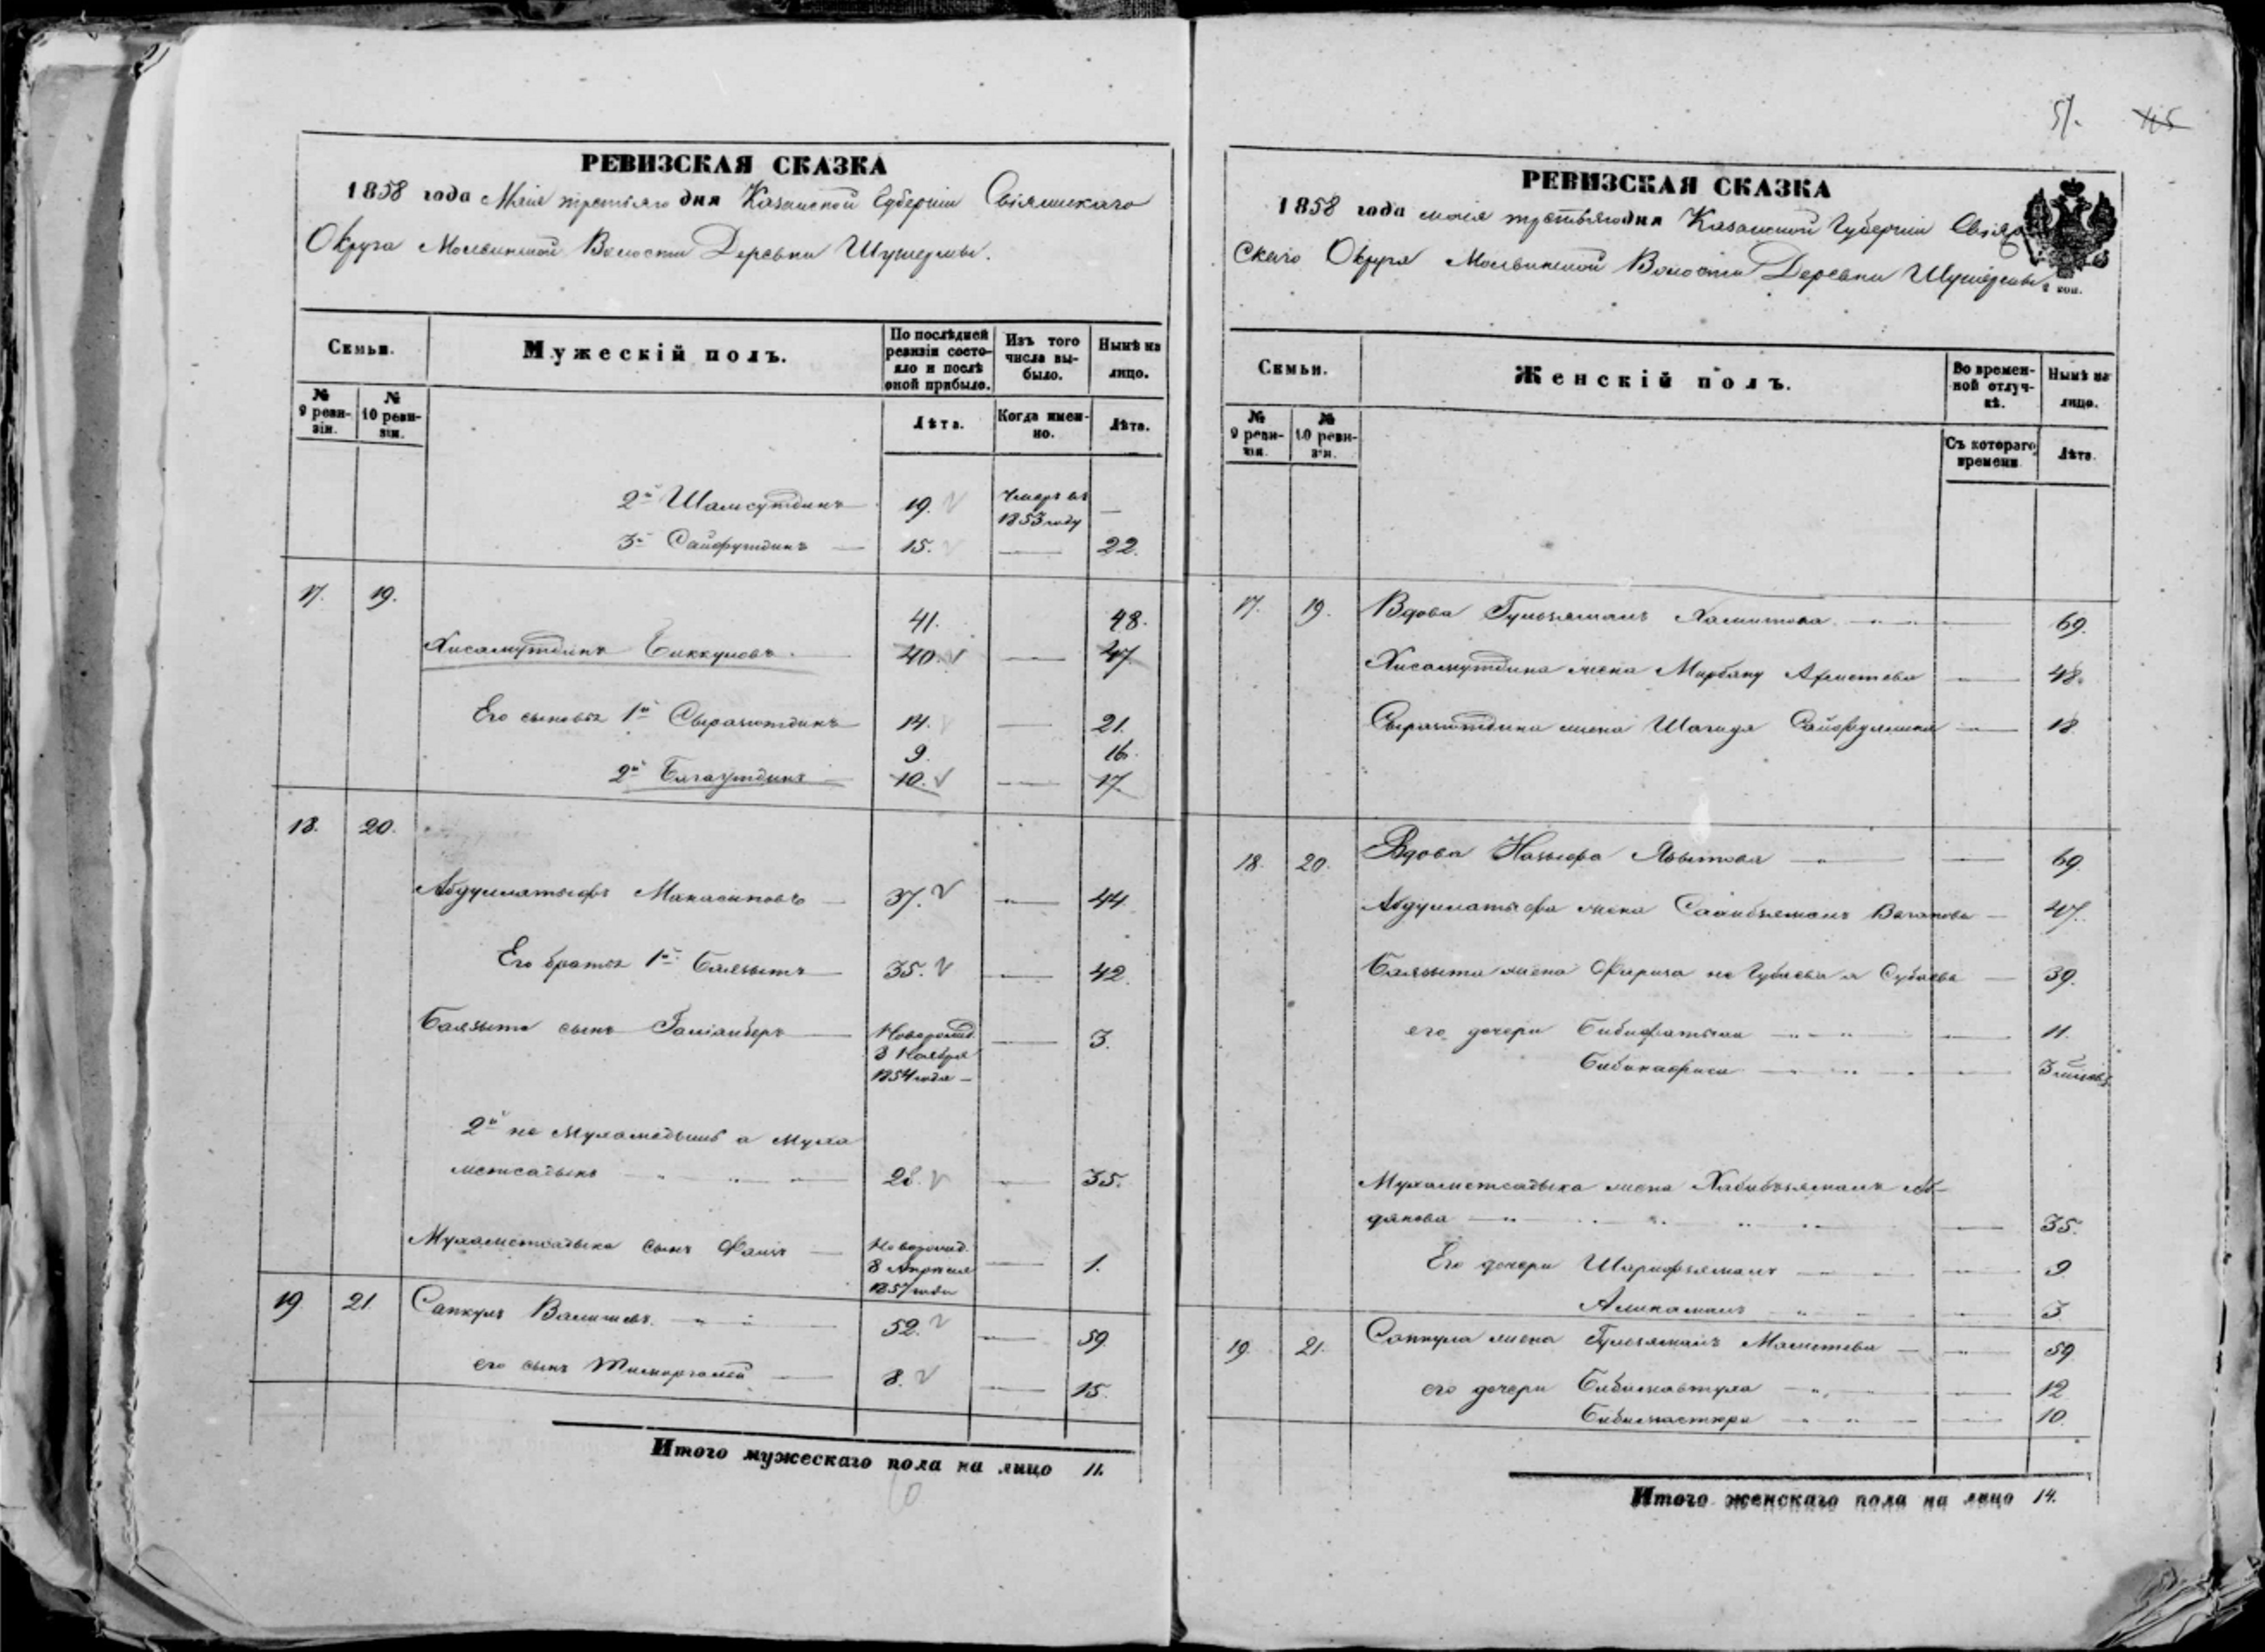 51. 45
РЕВИЗСКАЯ СКАЗКА
1858 года Маія третьяго дня Казанской Губерніи Свіяжскаго
Округа Молвинской Волости Деревни Шушермы.
Семьи.
Мужескій полъ.
По послѣдней ревизіи состояло и послѣ оной прибыло.
Изъ того числа выбыло.
Нынѣ на лицо.
№ 9 ревизіи.
№ 10 ревизіи.
Лѣта.
Когда именно.
Лѣта.
2й Шамсутдинъ 19. Умеръ въ 1853 году —
3й Сайфутдинъ — 15. — 22.
17. 19.
41. 48.
Хисамутдинъ Биккуловъ. 40. — 47
Его сыновья 1й Сыразютдинъ 14. — 21.
9. 16.
2й Багаутдинъ 10. — 17.
18. 20.
Абдуллатыфъ Манасыповъ — 37. — 44.
Его братья 1й Баязытъ 35. — 42.
Баязыта сынъ Галіанберъ Новорожд. 3 Ноября 1854 года — 3.
2й не Мухаметшъ а Муха
метсадыкъ 28. — 35.
Мухаметсадыка сынъ Фаизъ — Новорожд. 8 Апреля 1857 года — 1.
19. 21. Сапкулъ Валишевъ. 52. — 59.
его сынъ Тимиргалей — 8. — 15.
Итого мужескаго пола на лицо 11.
10
РЕВИЗСКАЯ СКАЗКА
1858 года маія третьяго дня Казанской Губерніи Свіяж
скаго Округа Молвинской Волости Деревни Шушермы.
коп.
Семьи.
Женскій полъ.
Во временной отлучкѣ.
Нынѣ на лицо.
№ 9 ревизіи.
№ 10 ревизіи.
Съ котораго времени
Лѣта.
17. 19. Вдова Гульзямалъ Хамитова — 69.
Хисамутдина жена Марбяну Ахметева — 48.
Сыразютдина жена Шагида Сайфулина — 18.
18. 20. Вдова Назыфа Явытова — 69.
Абдуллатыфа жена Сахибзямалъ Вагапова — 47.
Баязыта жена Фариза не Губаева а Субаева — 39.
его дочери Бибифатыма — 11.
Бибинафиса — 3 месяцовъ
Мухаметсадыка жена Хабибзямалъ Аб
дякова — 35.
Его дочери Шарифзямалъ — 9
Аликамалъ — 3
19. 21. Сапкула жена Гульзямалъ Маметева — 59.
его дочери Бибимавтуха — 12
Бибимастюра — 10.
Итого женскаго пола на лицо 14.